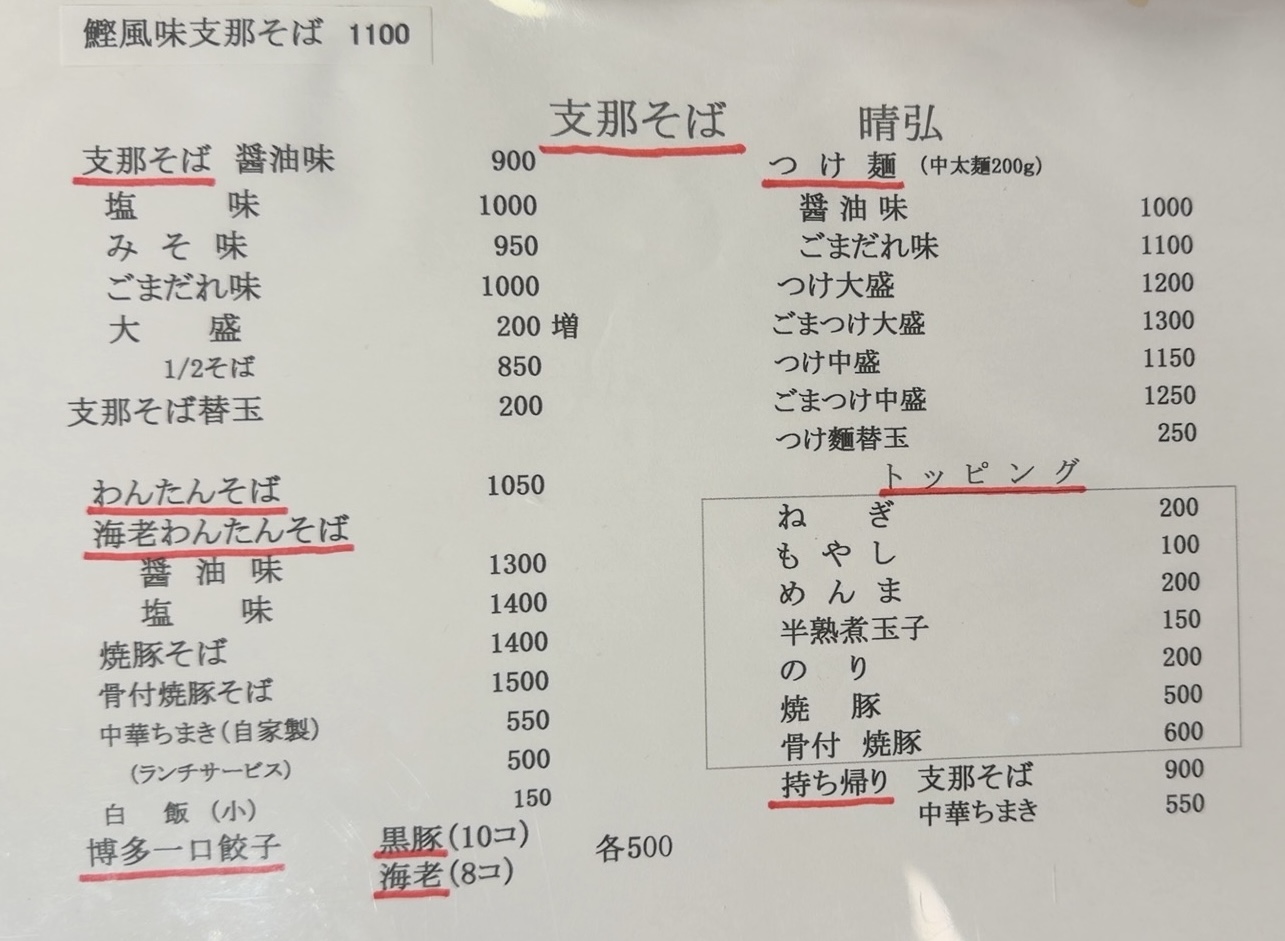 鰹風味支那そば 1100
支那そば 晴弘
支那そば 醤油味 900
塩味 1000
みそ味 950
ごまだれ味 1000
大盛 200 増
1/2そば 850
支那そば替玉 200
わんたんそば 1050
海老わんたんそば
醤油味 1300
塩味 1400
焼豚そば 1400
骨付焼豚そば 1500
中華ちまき(自家製) 550
(ランチサービス) 500
白飯(小) 150
博多一口餃子 黒豚(10コ) 各500
海老(8コ)
つけ麺 (中太麺200g)
醤油味 1000
ごまだれ味 1100
つけ大盛 1200
ごまつけ大盛 1300
つけ中盛 1150
ごまつけ中盛 1250
つけ麵替玉 250
トッピング
ねぎ 200
もやし 100
めんま 200
半熟煮玉子 150
のり 200
焼豚 500
骨付 焼豚 600
持ち帰り 支那そば 900
中華ちまき 550